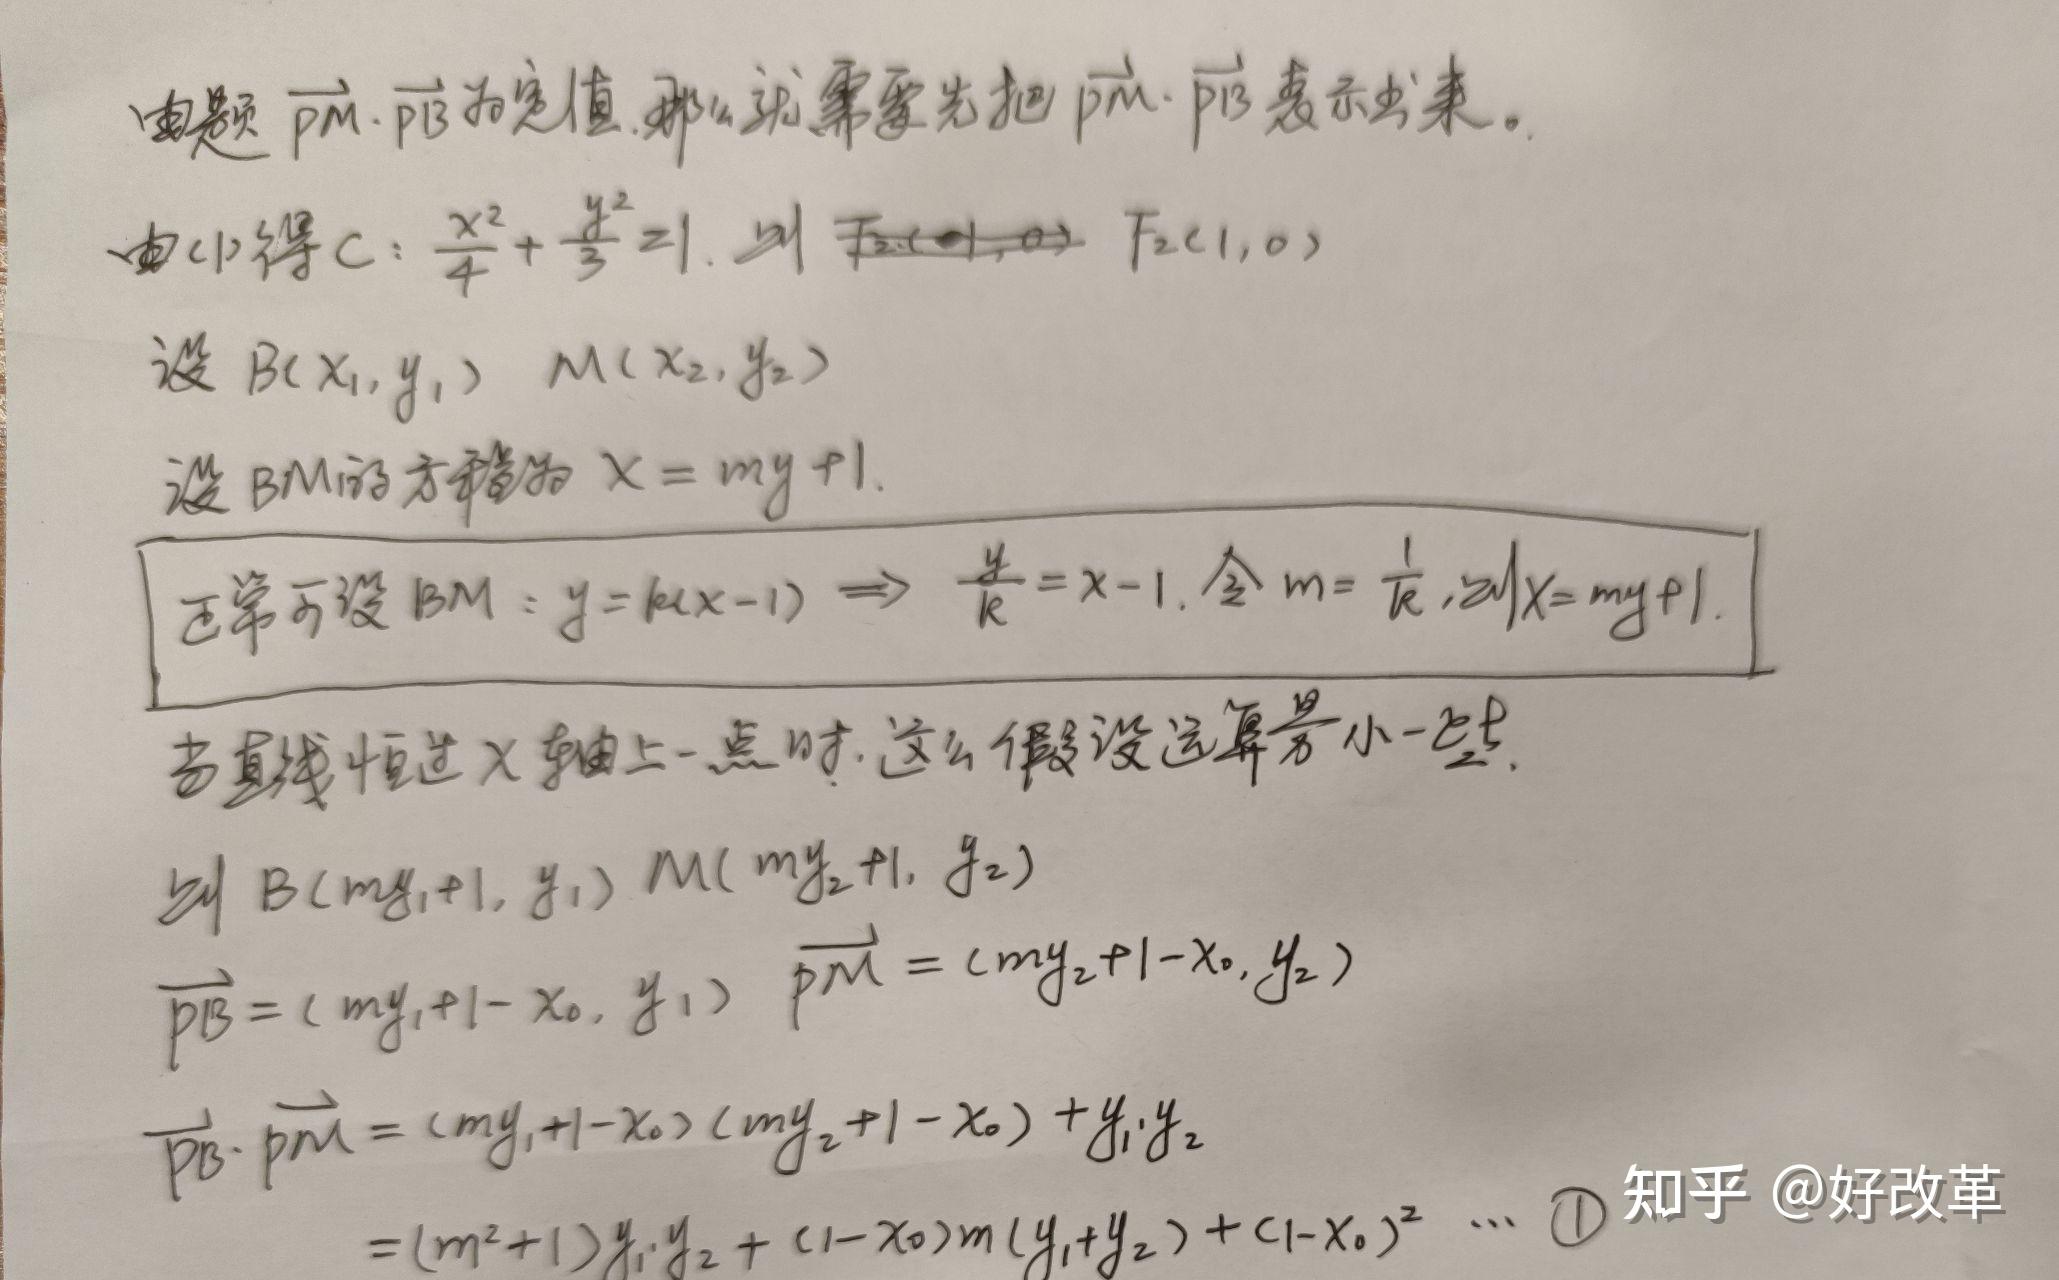 由题 $\overrightarrow{PM}·\overrightarrow{PB}$ 为定值,那么就需要先把 $\overrightarrow{PM}·\overrightarrow{PB}$ 表示出来。
由(1)得C: $\frac{x^2}{4}+\frac{y^2}{3}=1$. 则 F₂(1,0)
设 B(x₁,y₁) M(x₂,y₂)
设BM的方程为 x=my+1.
正常可设BM: y=k(x-1) ⟹ $\frac{y}{k}$=x-1. 令 m=$\frac{1}{k}$,则x=my+1.
当直线恒过x轴上一点时.这么假设运算量小一些.
则 B(my₁+1, y₁) M(my₂+1, y₂)
$\overrightarrow{PB}$=(my₁+1-x₀, y₁) $\overrightarrow{PM}$=(my₂+1-x₀, y₂)
$\overrightarrow{PB}·\overrightarrow{PM}$=(my₁+1-x₀)(my₂+1-x₀)+y₁·y₂
=(m²+1)y₁·y₂+(1-x₀)m(y₁+y₂)+(1-x₀)² … ①
知乎 @好改革